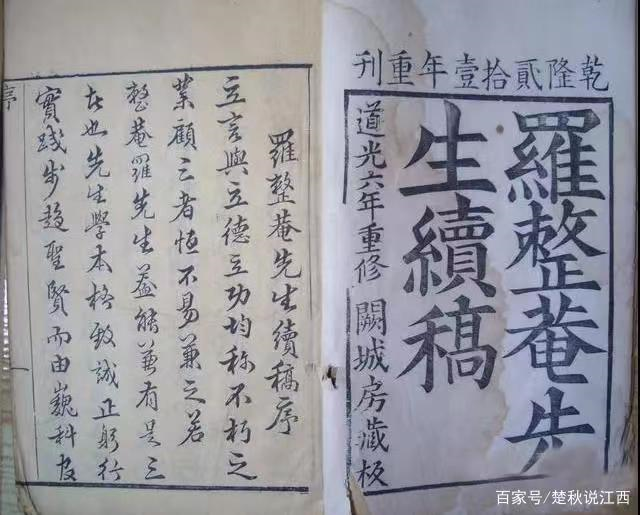 乾隆貳拾壹年重刊
羅整菴先
生續稿
道光六年重修 闕城房藏板
羅整菴先生續稿序
立言與立德立功均称不朽之
業顧三者恒不易兼之若
整菴羅先生蓋能兼有是三
者也先生學本格致誠正躬行
實踐步趨聖賢而由巍科官
序
百家号/楚秋说江西